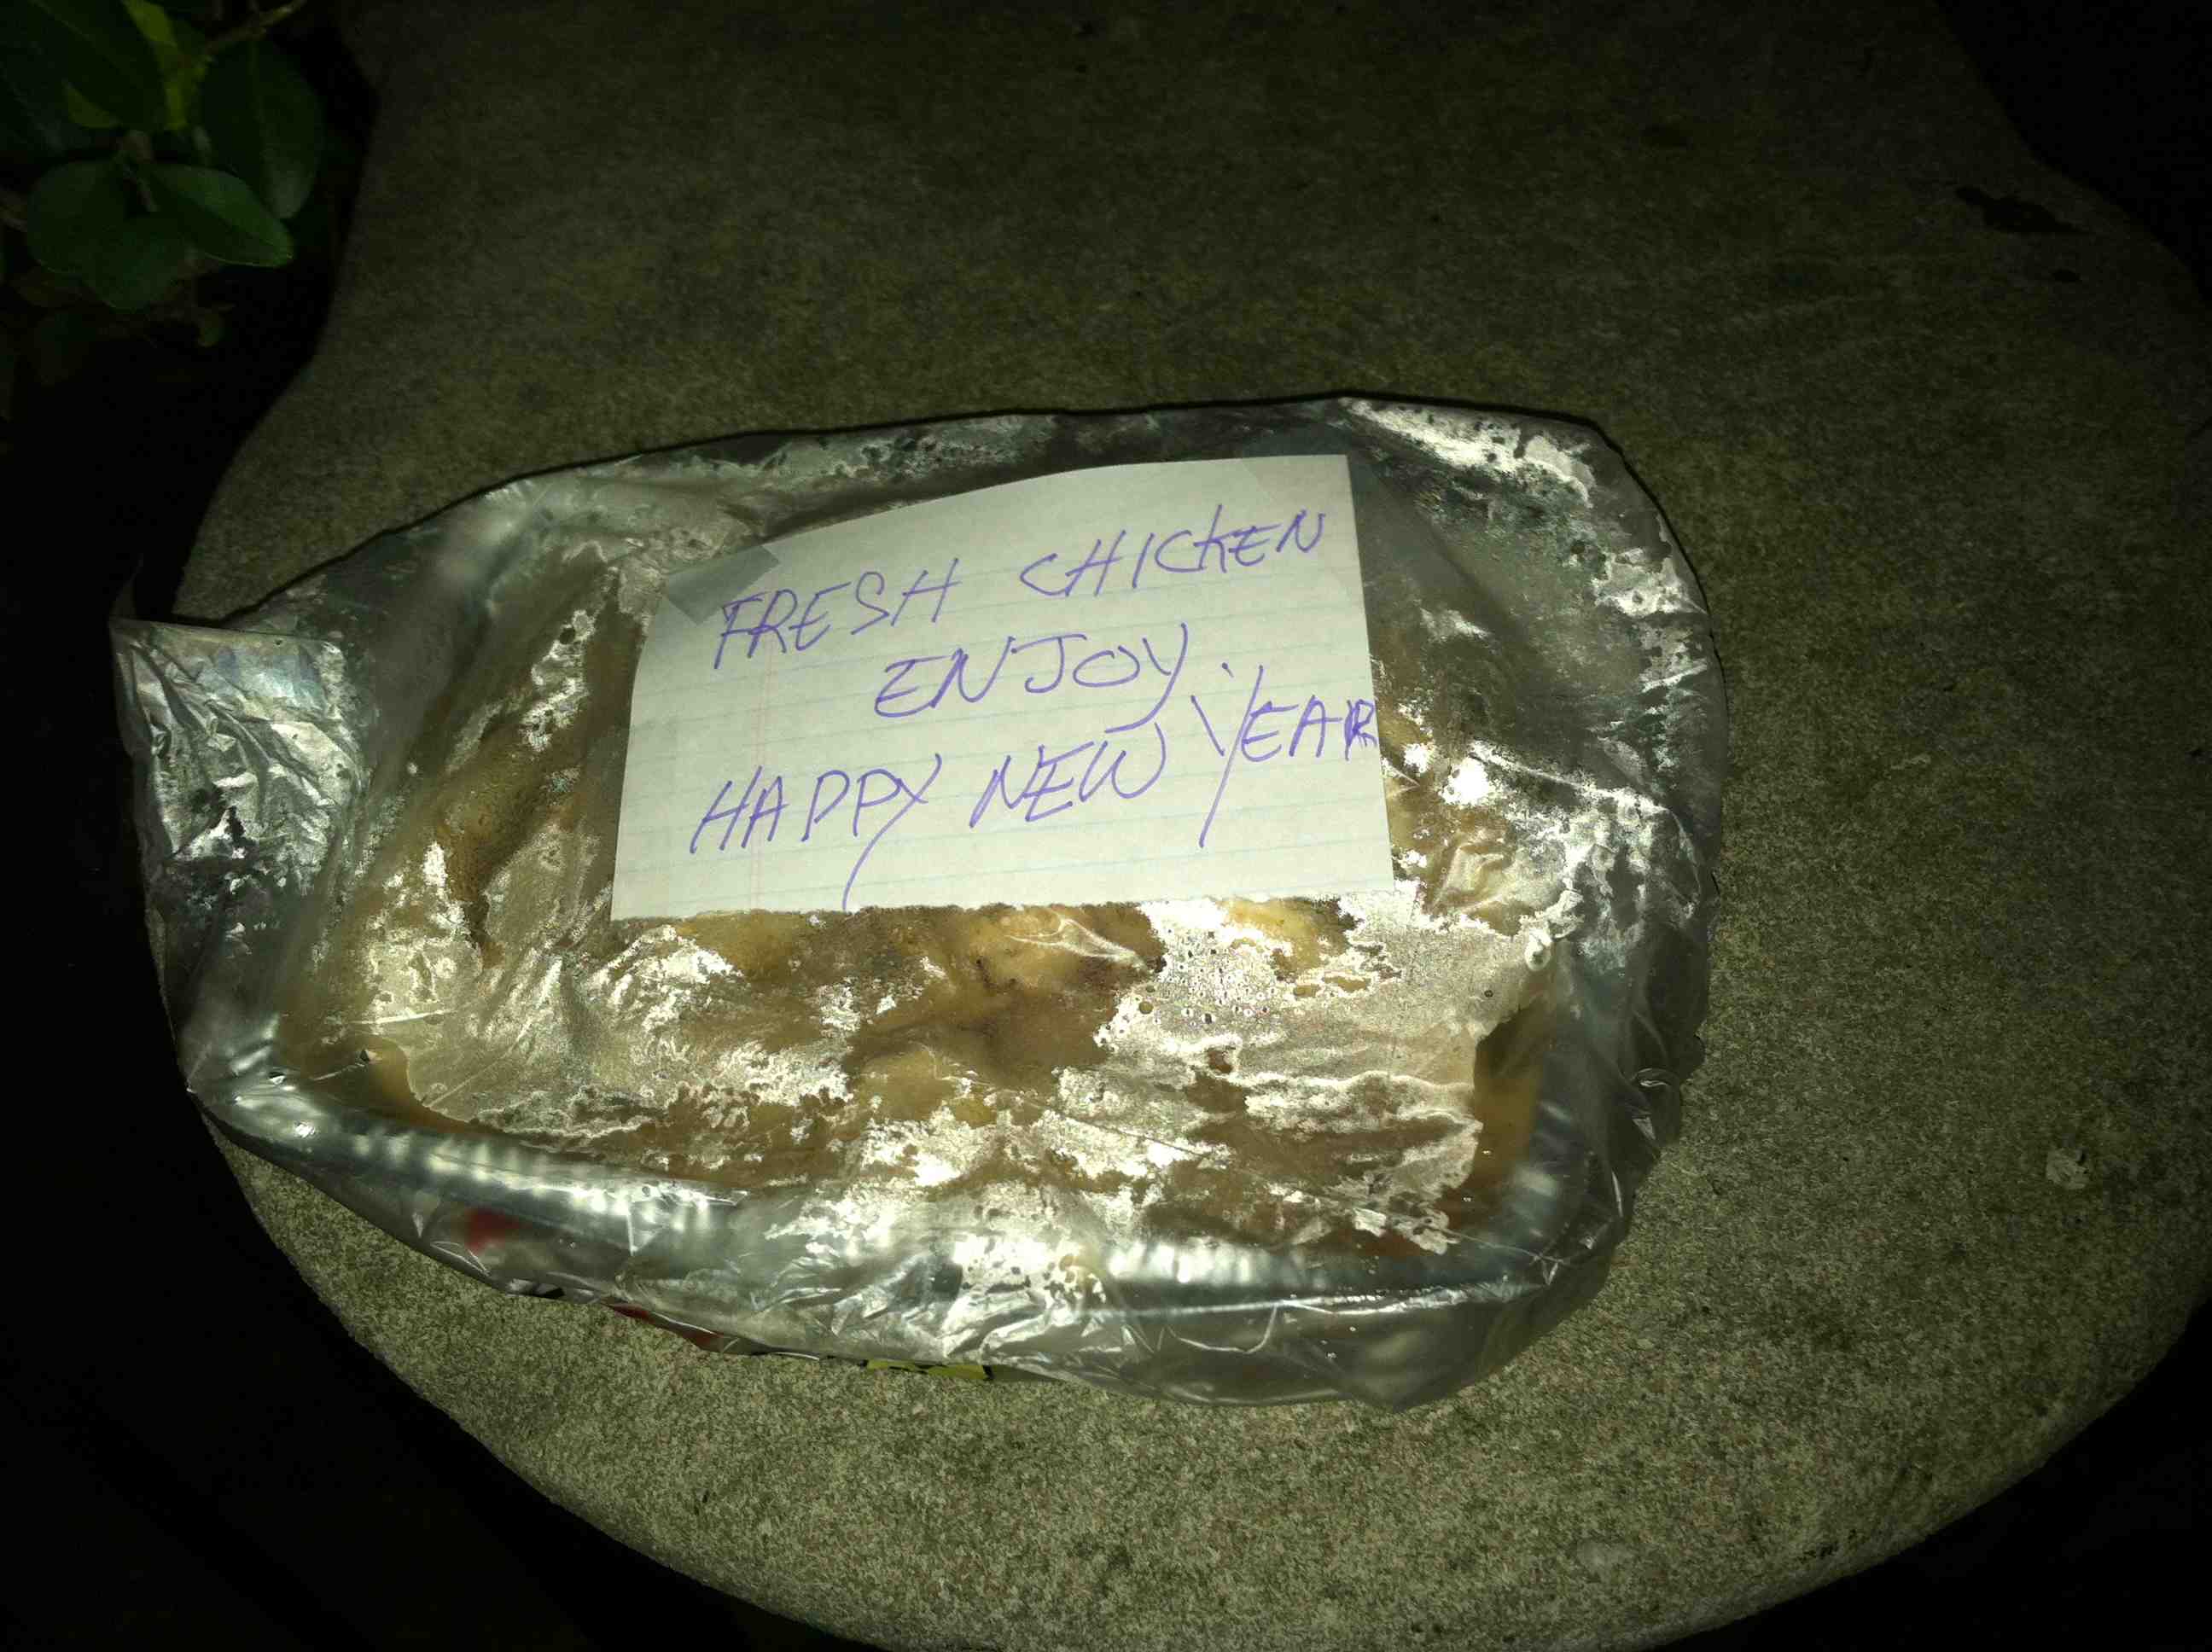 FRESH CHICKEN
ENJOY
HAPPY NEW YEAR